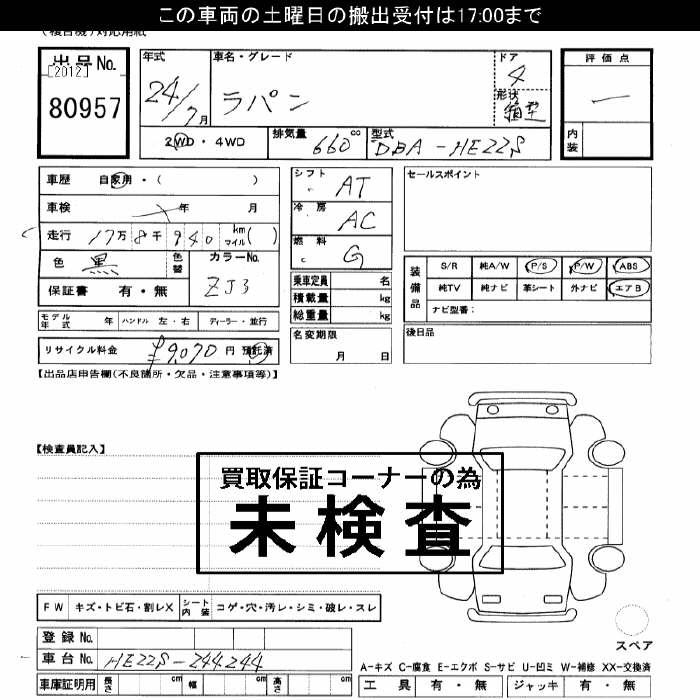 この車両の土曜日の搬出受付は17:00まで
(複合機)対応用紙
出品No.
[2012]
80957
年式
24/7月
車名・グレード
ラパン
ドア
4
形状
箱型
評価点
内装
2WD・4WD
排気量
660cc
型式
DBA-HE22S
車歴 自家用・( )
車検 年 月
走行 17万8千940 km マイル( )
色 黒
色替
カラーNo.
ZJ3
保証書 有・無
シフト
AT
冷房
AC
燃料
G
乗車定員 名
積載量 kg
総重量 kg
セールスポイント
装備品
S/R 純A/W P/S P/W ABS
純TV 純ナビ 革シート 外ナビ エアB
ナビ型番:
モデル年式 年 ハンドル 左・右 ディーラー・並行
名変期限
月 日
後日品
リサイクル料金 ¥9,070 円 預託済
【出品店申告欄(不良箇所・欠品・注意事項等)】
【検査員記入】
買取保証コーナーの為
未検査
FW キズ・トビ石・割レX シート内装 コゲ・穴・汚レ・シミ・破レ・スレ
登録No.
車台No. HE22S-244244
車庫証明用 長さ cm 幅 cm 高さ cm
スペア
A-キズ C-腐食 E-エクボ S-サビ U-凹ミ W-補修 XX-交換済
工具 有・無 ジャッキ 有・無